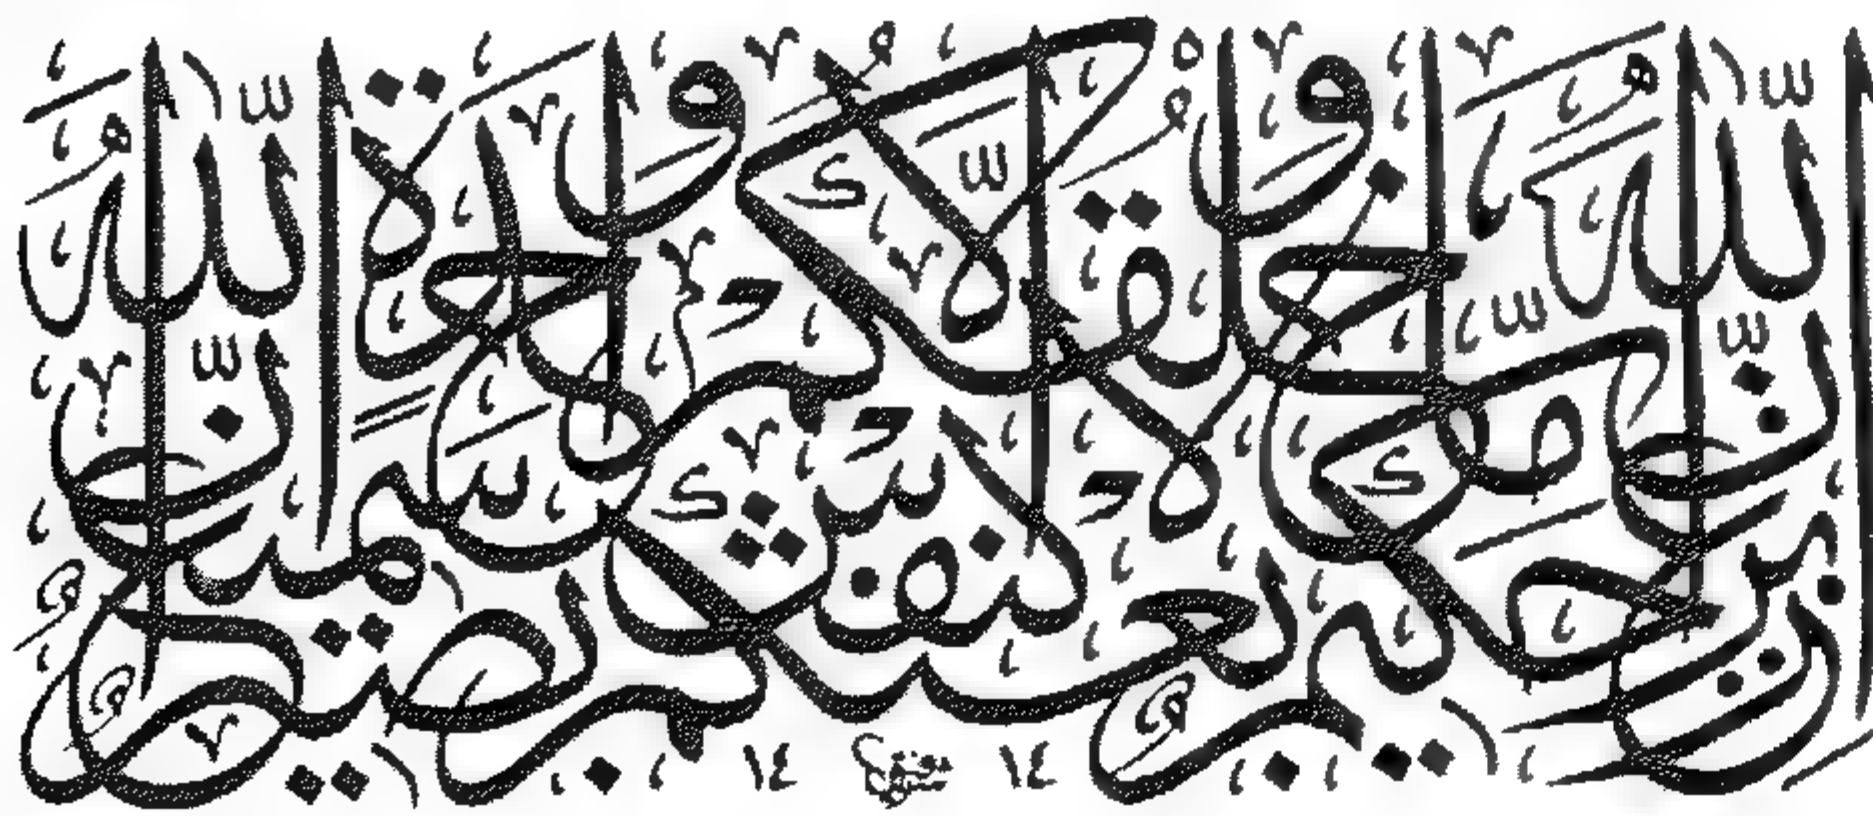 إن الله عزيز حكيم ما خلقكم ولا بعثكم إلا كنفس واحدة إن الله سميع بصير
١٤ ١٤